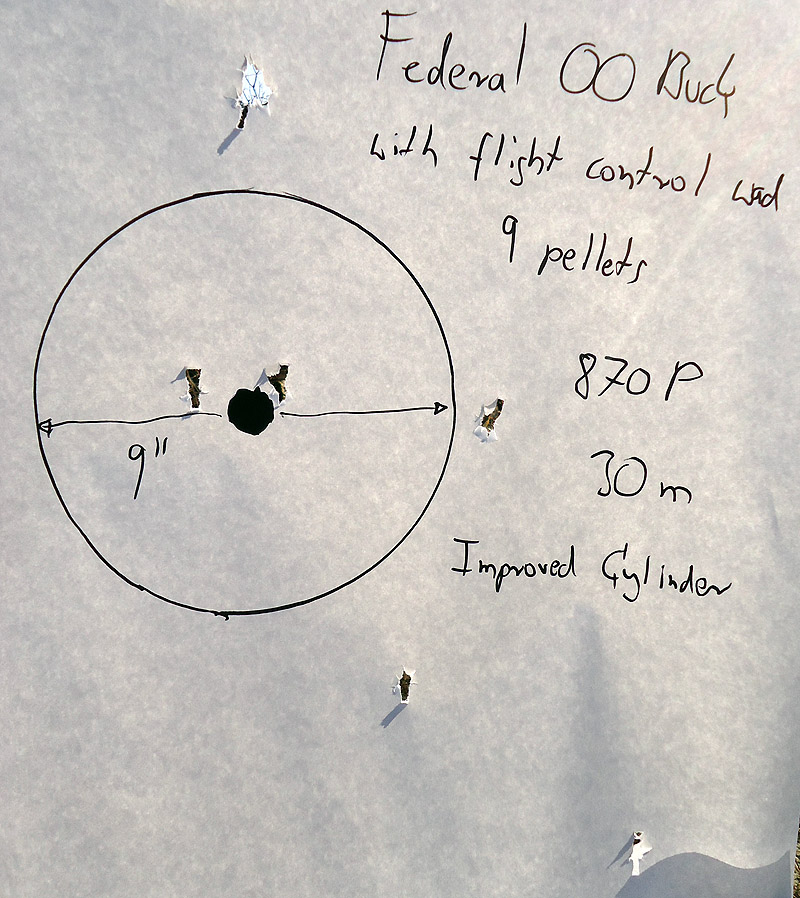 Federal 00 Buck
with flight control wad
9 pellets
870 P
30 m
Improved Cylinder
9"